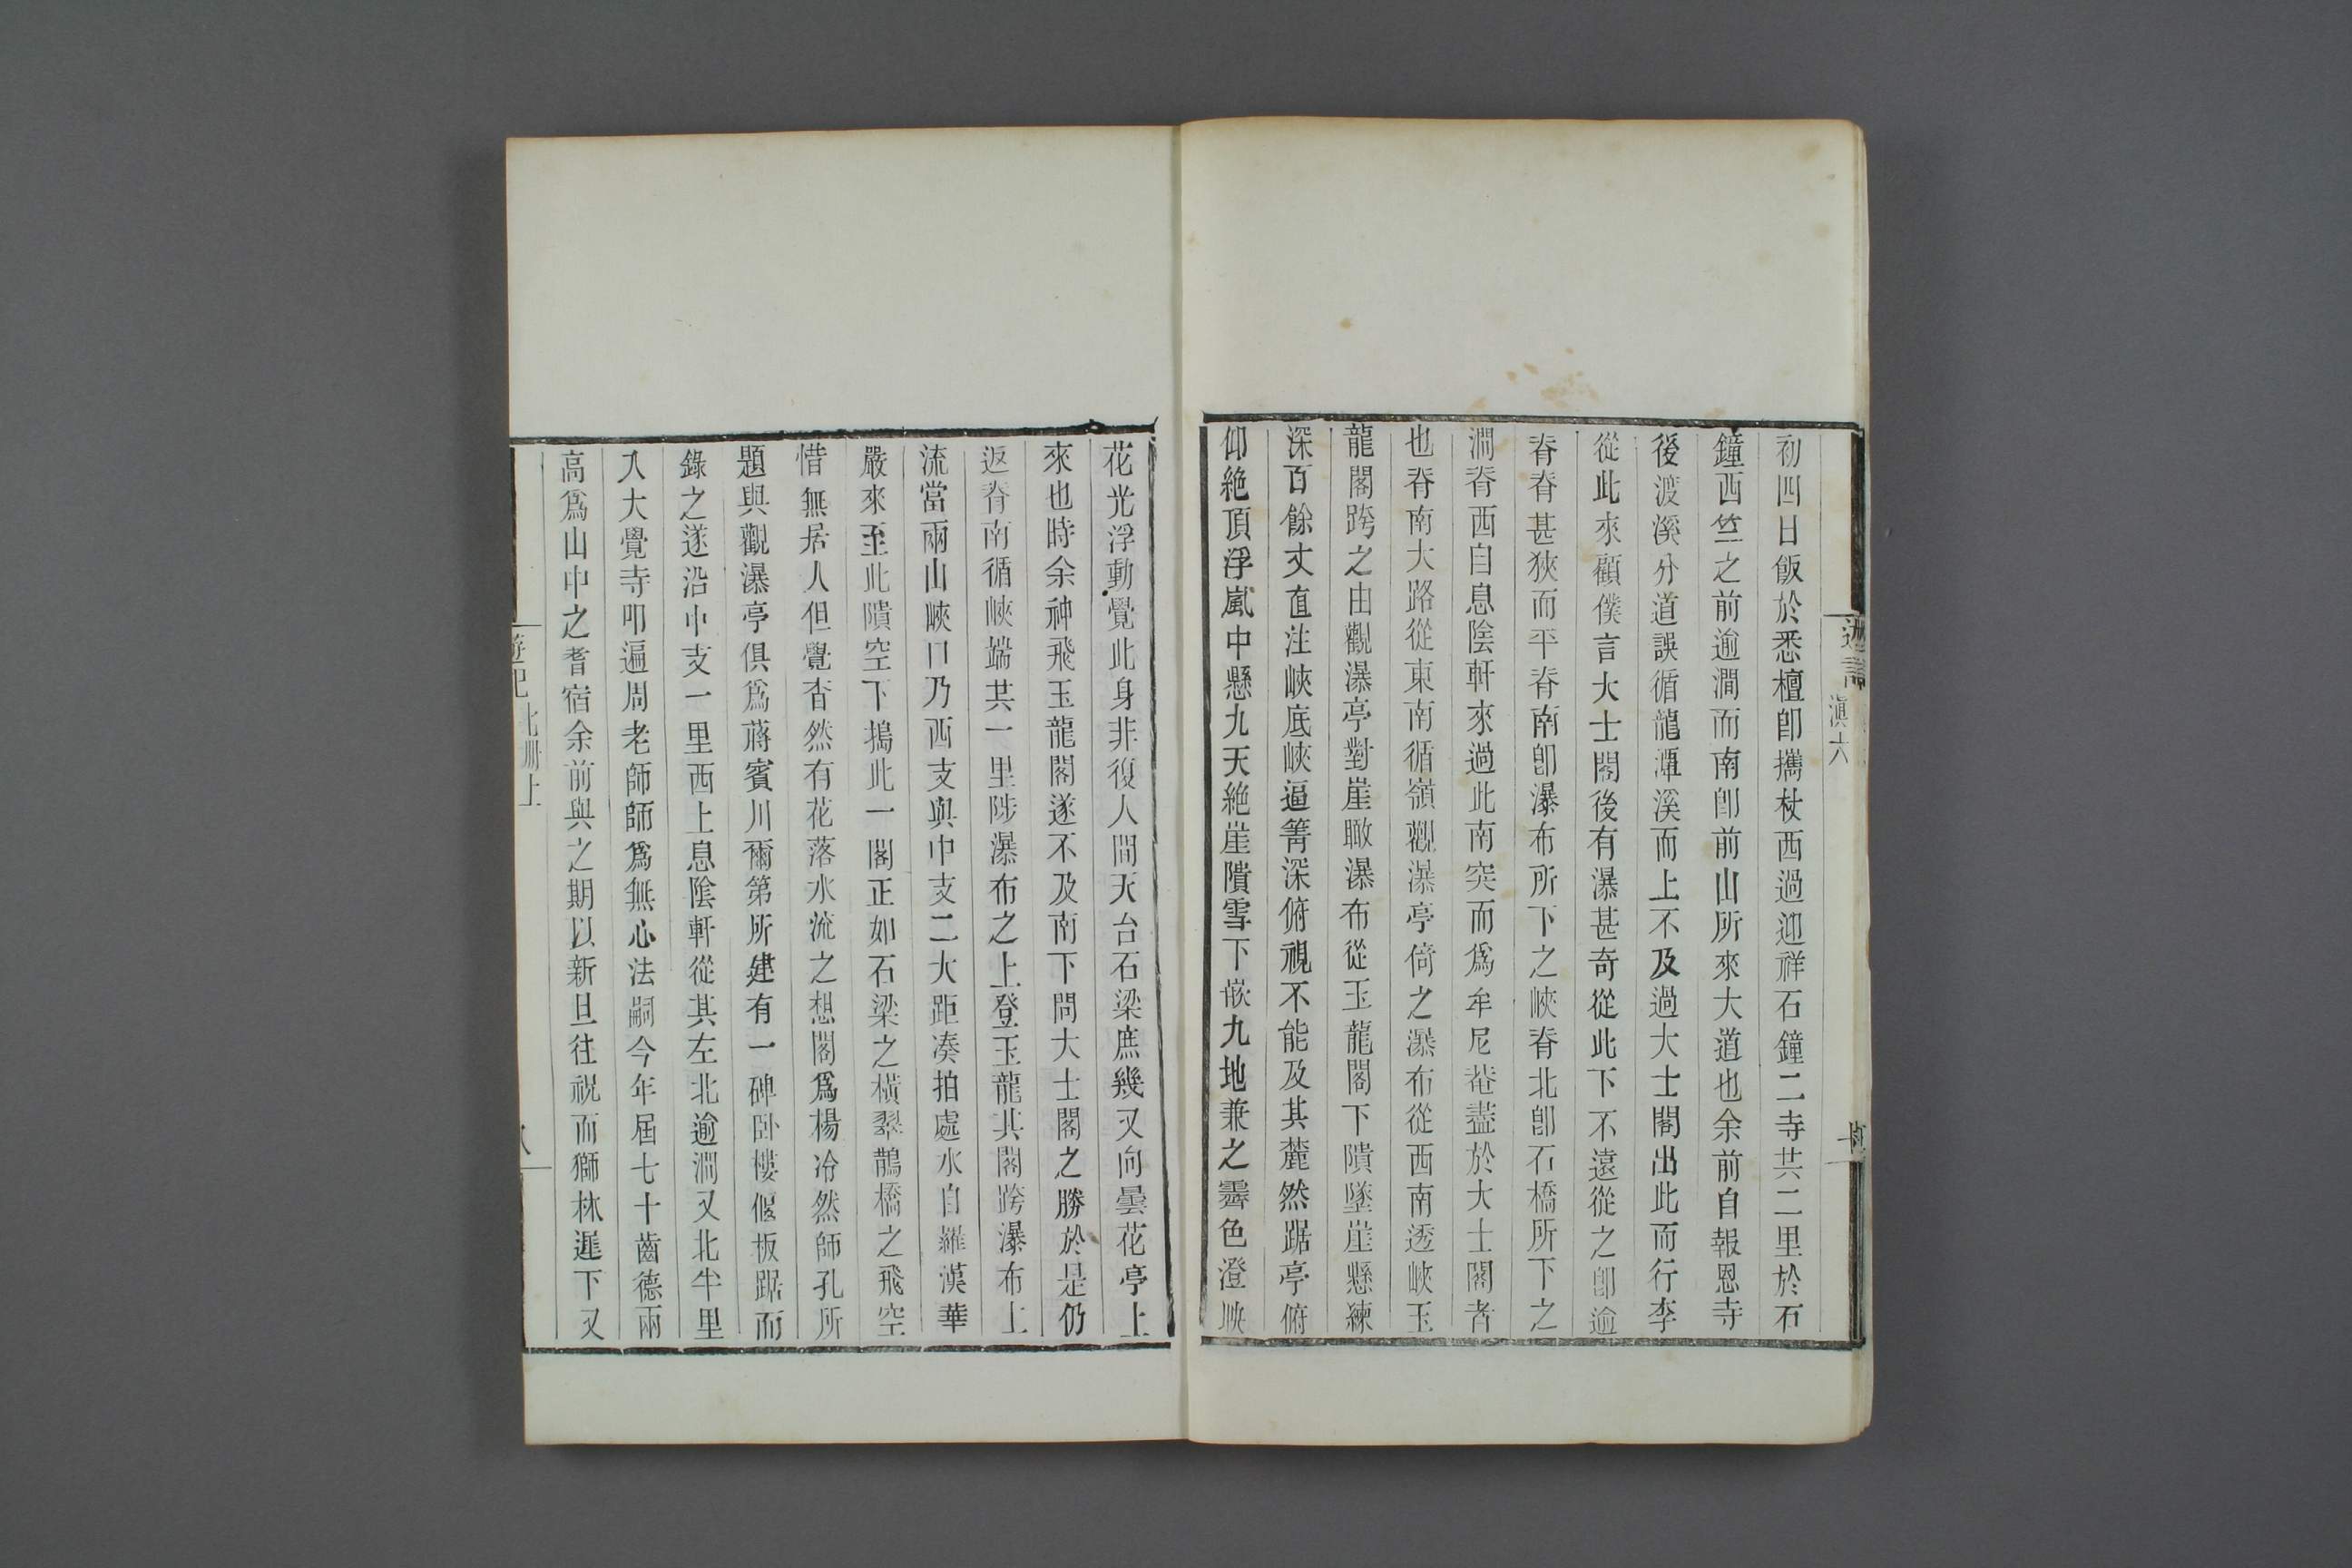 初四日飯於悉檀卽攜杖西過迎祥石鐘二寺共二里於石
鐘西竺之前逾澗而南卽前山所來大道也余前自報恩寺
後渡溪分道誤循龍潭溪而上不及過大士閣出此而行李
從此來顧僕言大士閣後有瀑甚奇從此下不遠從之卽逾
脊脊甚狹而平脊南卽瀑布所下之峽脊北卽石橋所下之
澗脊西自息陰軒來過此南突而爲牟尼菴盡於大士閣者
也脊南大路從東南循嶺觀瀑亭倚之瀑布從西南透峽玉
龍閣跨之由觀瀑亭對崖瞰瀑布從玉龍閣下隤墜崖懸練
深百餘丈直注峽底峽逼箐深俯視不能及其麓然踞亭俯
仰絶頂浮嵐中懸九天絶崖隤雪下嵌九地兼之霽色澄映
滇六
花光浮動覺此身非復人間天台石梁庶幾又向曇花亭上
來也時余神飛玉龍閣遂不及南下問大士閣之勝於是仍
返脊南循峽端共一里陟瀑布之上登玉龍其閣跨瀑布上
流當兩山峽口乃西支與中支二大距湊拍處水自羅漢華
嚴來至此隤空下搗此一閣正如石梁之橫翠鵲橋之飛空
惜無居人但覺杳然有花落水流之想閣爲楊冷然師孔所
題與觀瀑亭俱爲蔣賓川爾第所建有一碑卧樓偃板踞而
錄之遂沿中支一里西上息陰軒從其左北逾澗又北半里
入大覺寺叩遍周老師師爲無心法嗣今年屆七十齒德兩
高爲山中之耆宿余前與之期以新旦往祝而獅林遲下又
遊記 北册上
八